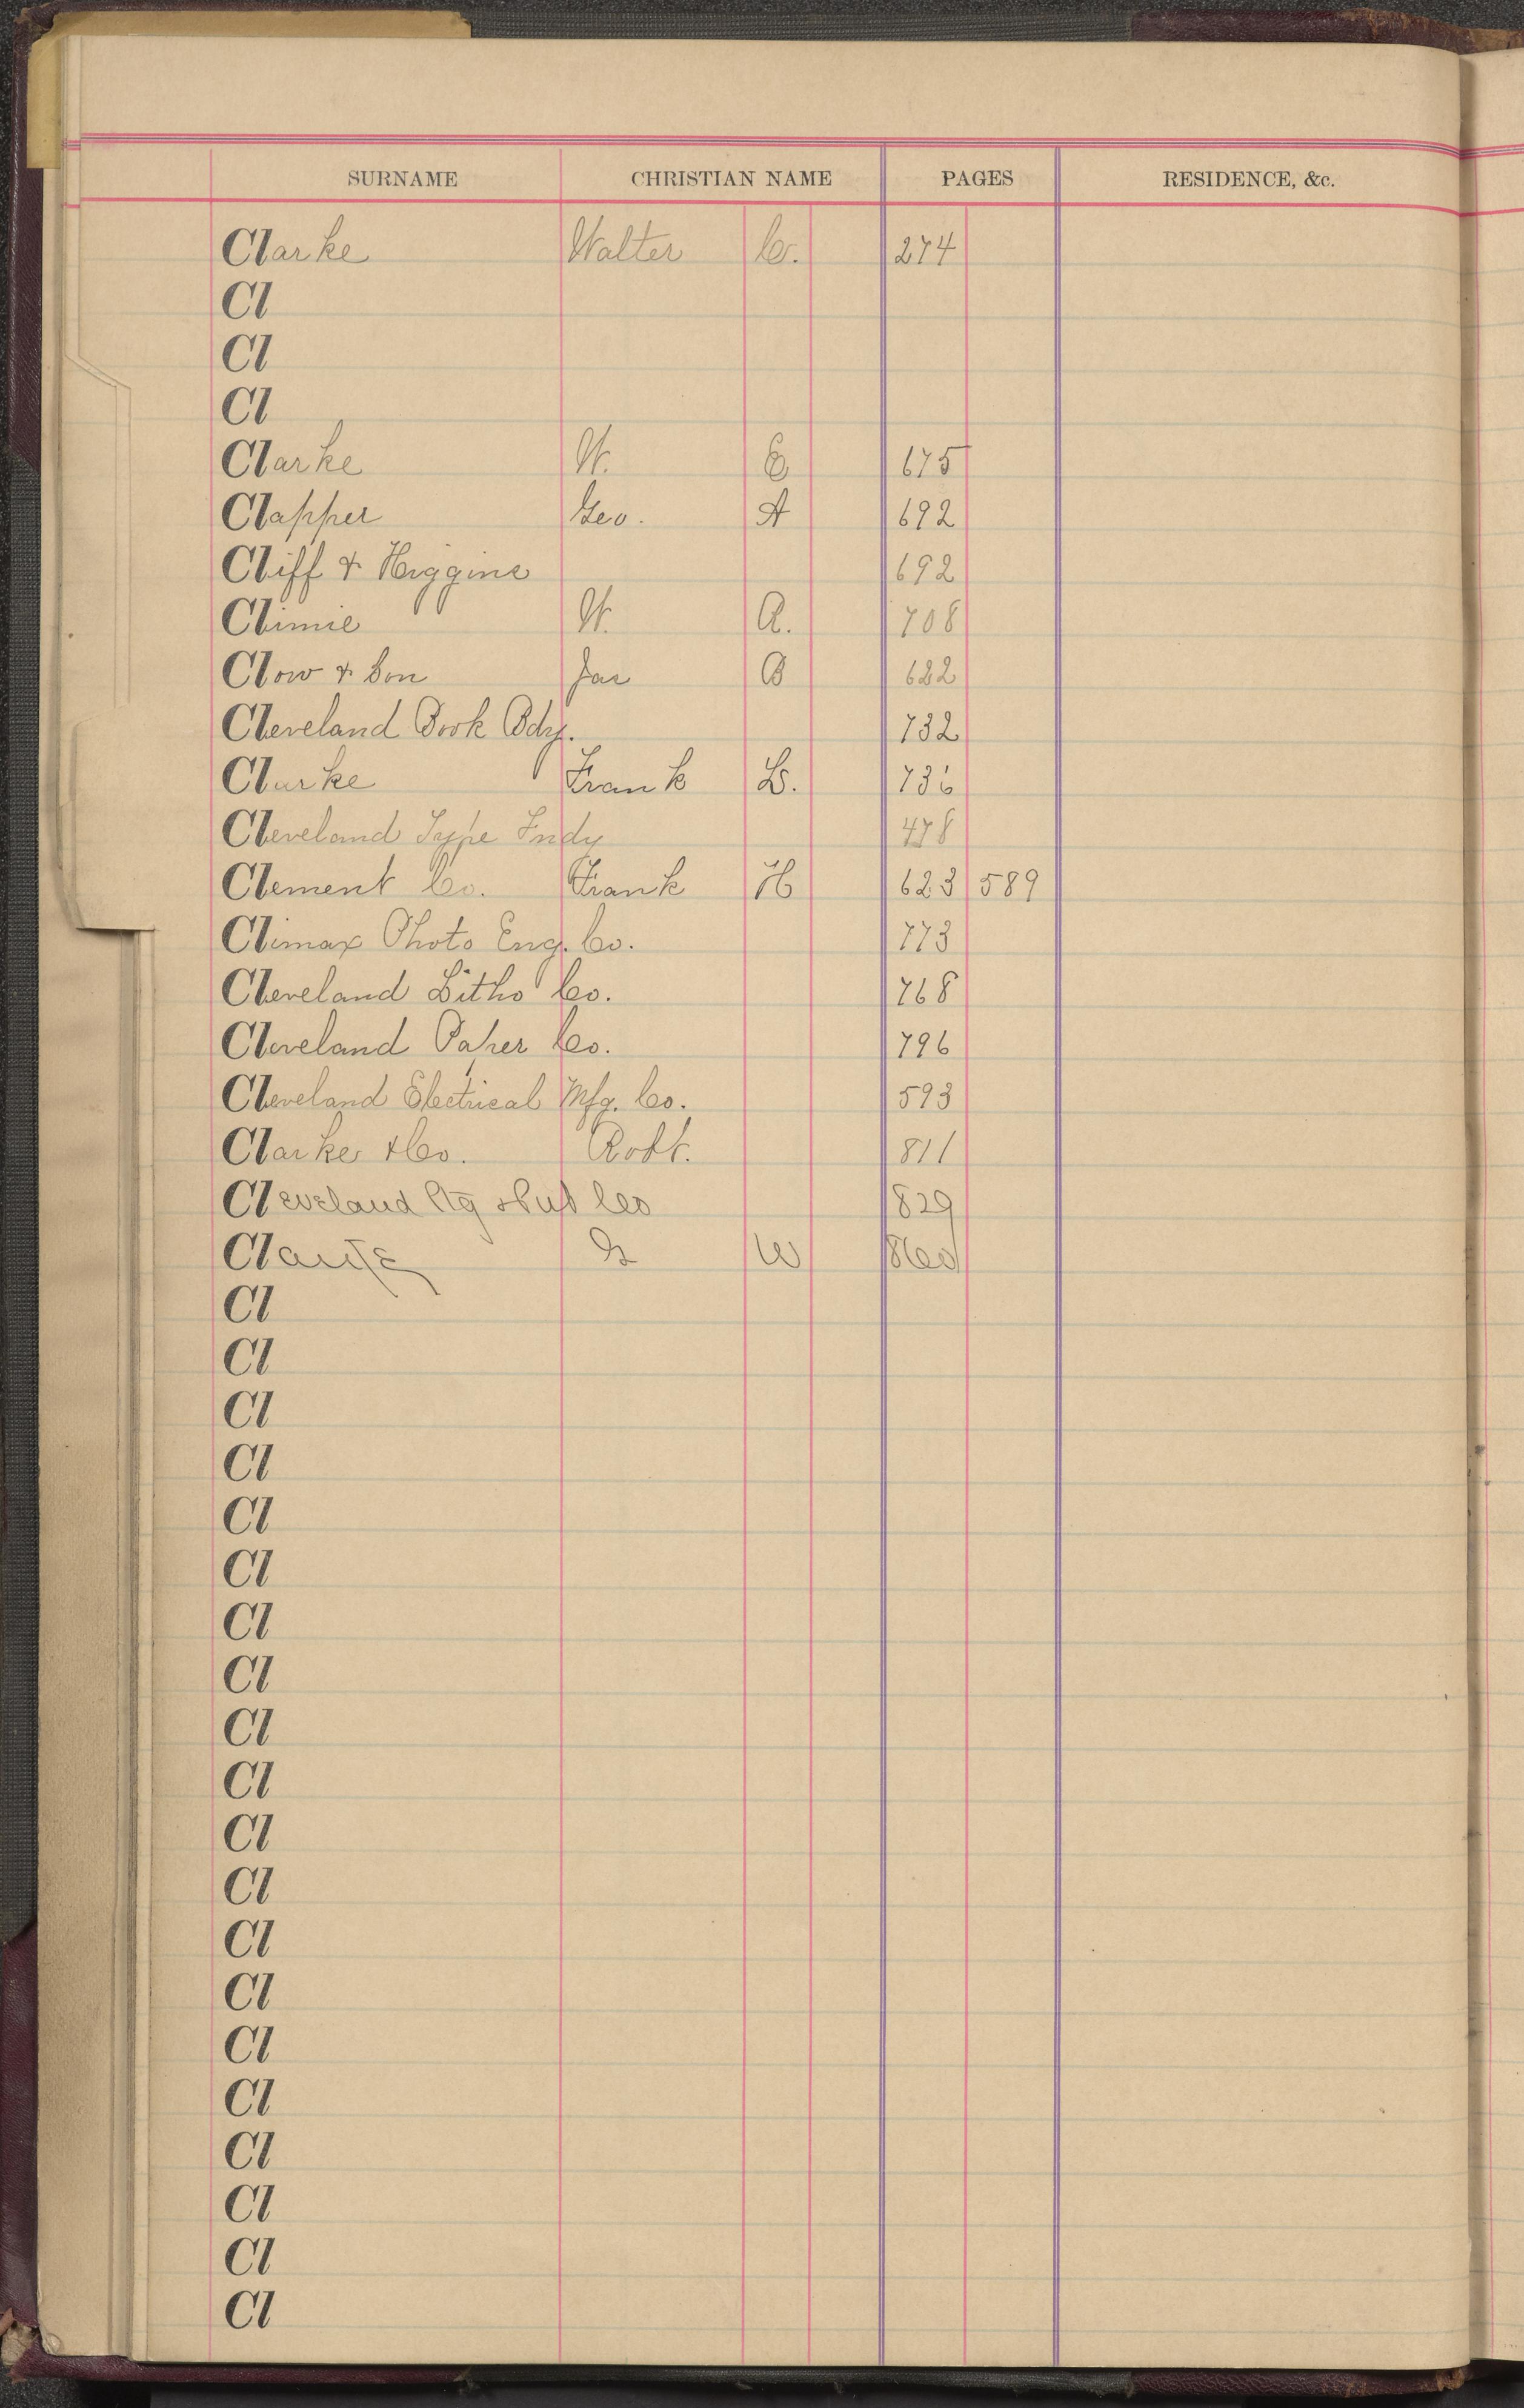 SURNAME CHRISTIAN NAME PAGES RESIDENCE, &c.
Clarke Walter C. 274
Cl
Cl
Cl
Clarke W. E 675
Clapper Geo. A 692
Cliff & Higgins 692
Climie W. A. 708
Clow & Son Jas B 682
Cleveland Book Bdy. 732
Clarke Frank L. 736
Cleveland Type Fndy 478
Clement Co. Frank H 623 589
Climax Photo Eng. Co. 773
Cleveland Litho Co. 768
Cleveland Paper Co. 796
Cleveland Electrical Mfg. Co. 593
Clarke & Co. Robt. 811
Cleveland Ptg & Pub Co 829
Cl W 860
Cl
Cl
Cl
Cl
Cl
Cl
Cl
Cl
Cl
Cl
Cl
Cl
Cl
Cl
Cl
Cl
Cl
Cl
Cl
Cl